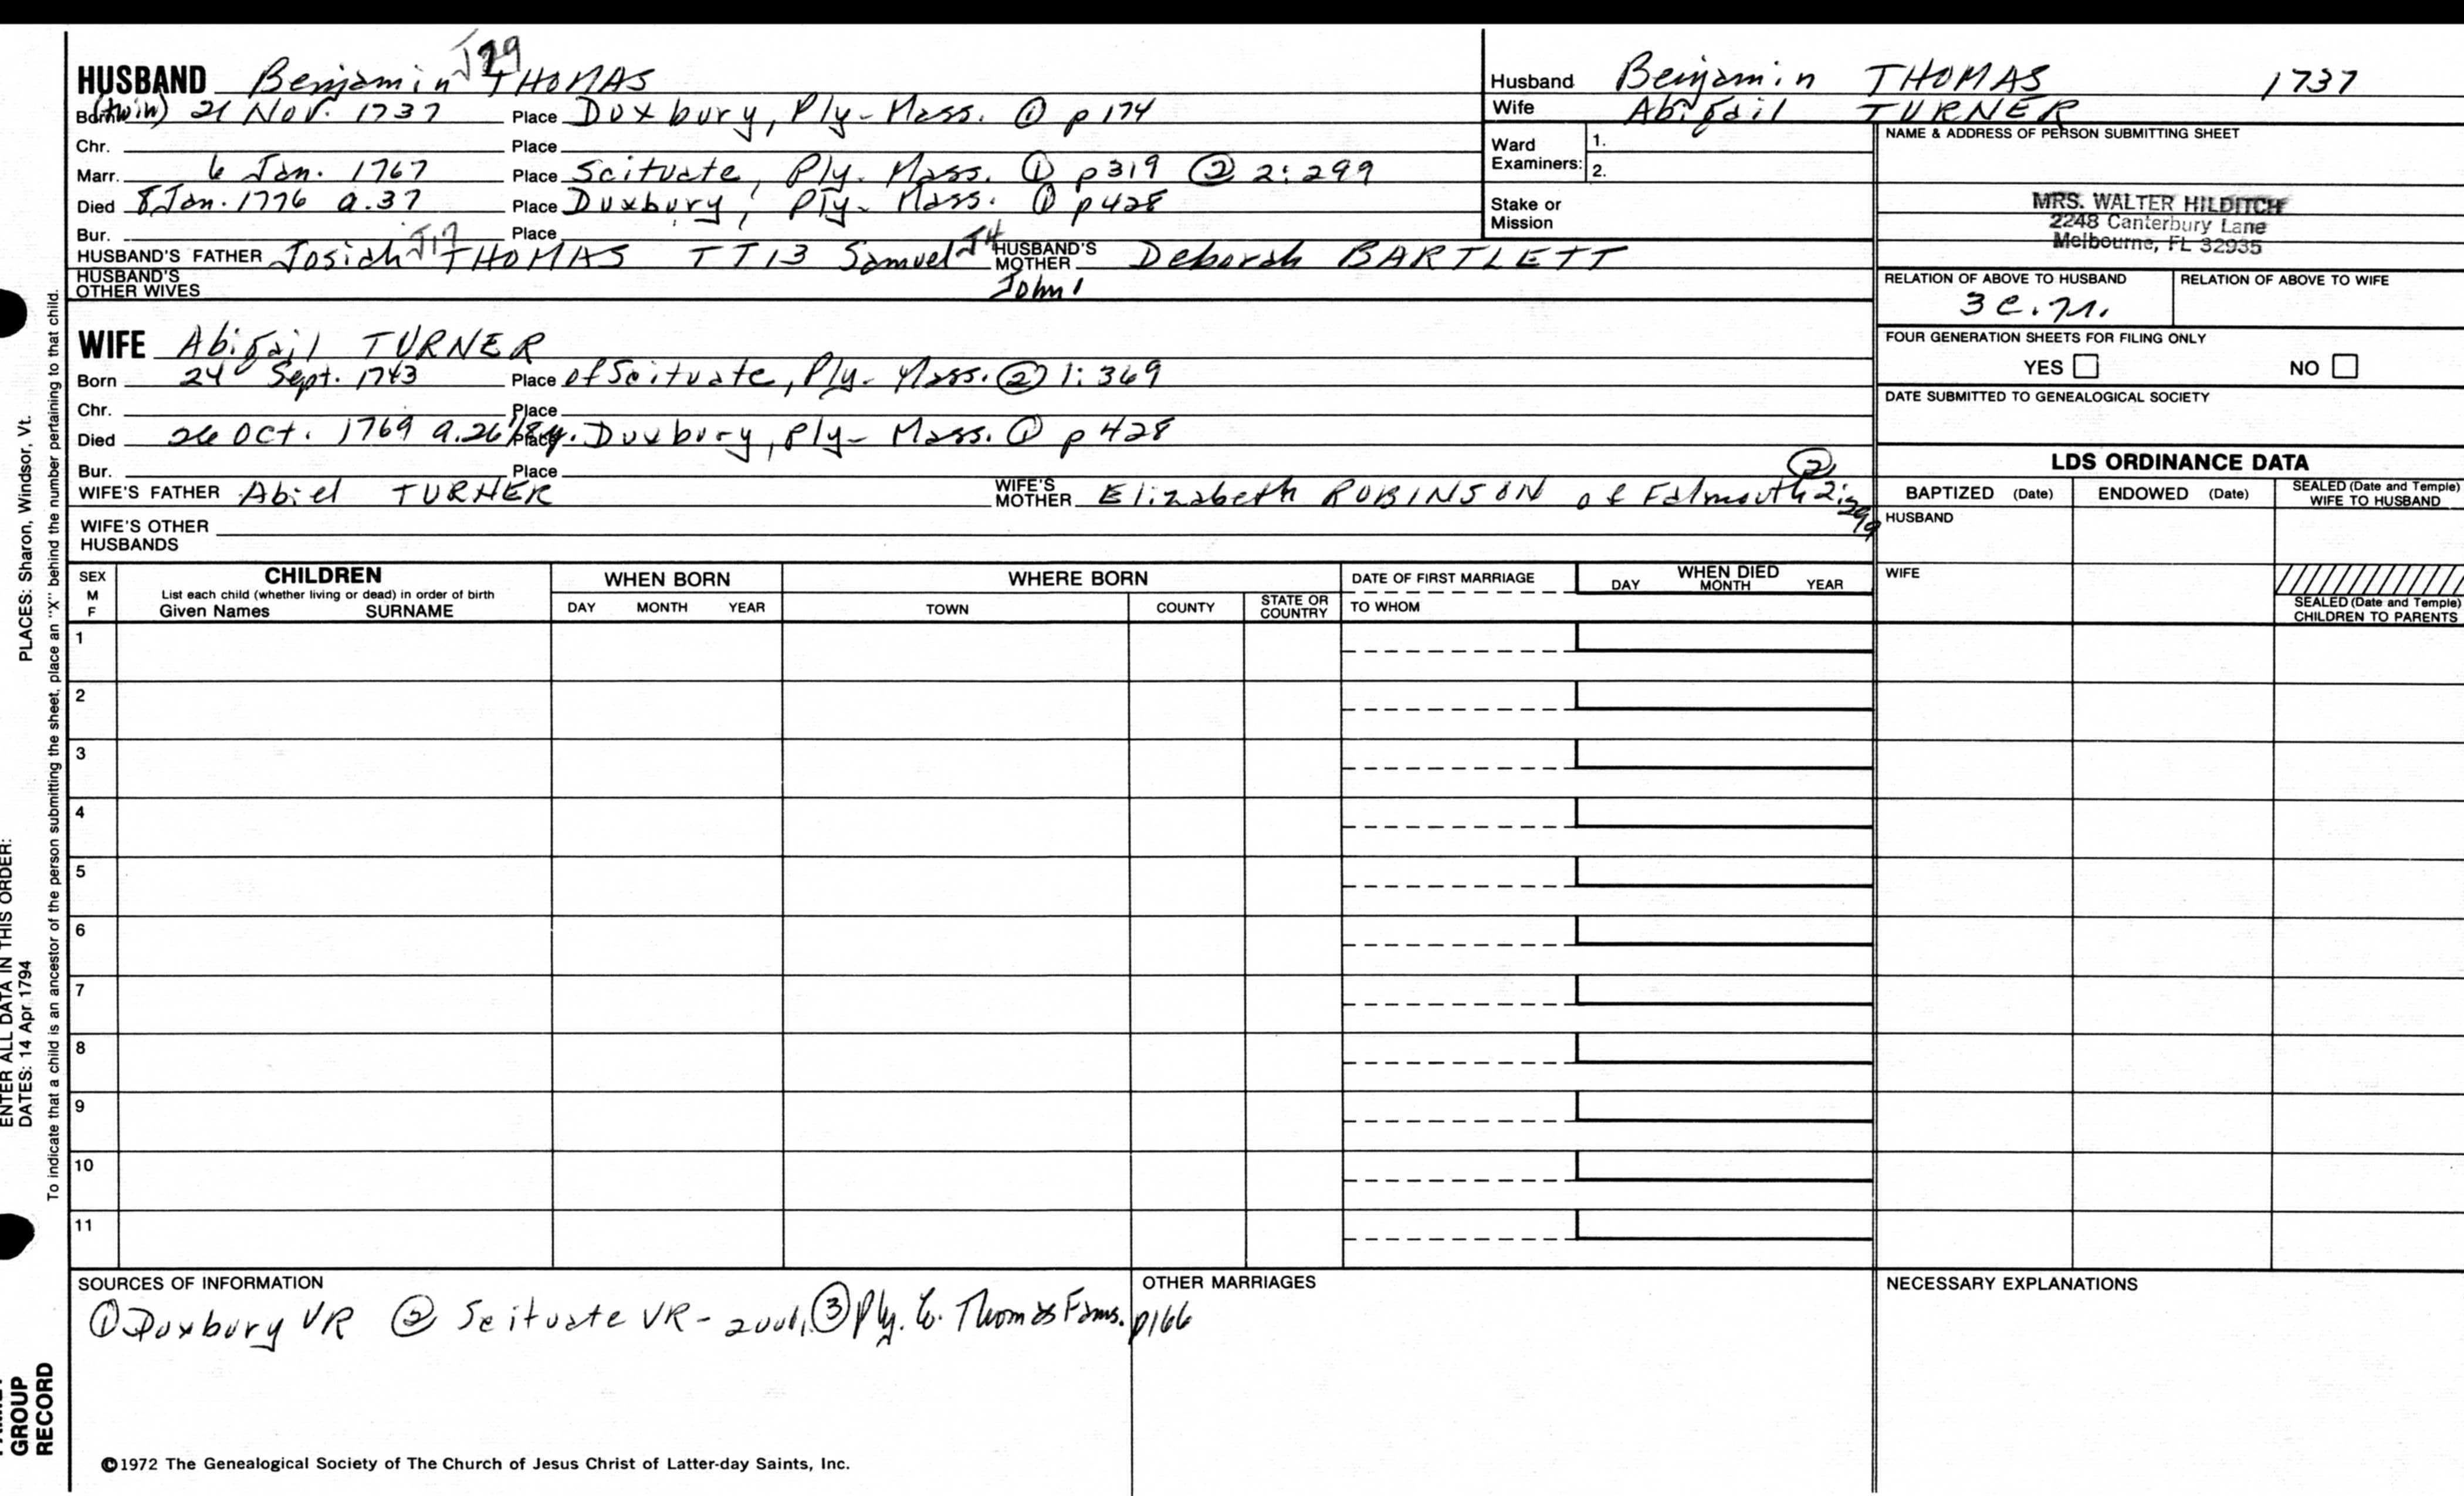 HUSBAND Benjamin J29 THOMAS
Born (twin) 21 Nov. 1737 Place Duxbury, Ply- Mass. ① p 174
Chr. Place
Marr. 6 Jan. 1767 Place Scituate, Ply. Mass. ① p 319 ② 2:299
Died 8 Jan. 1776 a.37 Place Duxbury, Ply- Mass. ① p 428
Bur. Place
HUSBAND'S FATHER Josiah J17 THOMAS TT13 Samuel J4 HUSBAND'S MOTHER Deborah BARTLETT
HUSBAND'S OTHER WIVES John 1
WIFE Abigail TURNER
Born 24 Sept. 1743 Place of Scituate, Ply- Mass. ② 1:369
Chr. Place
Died 26 Oct. 1769 a.26 Place Duxbury, Ply- Mass. ① p 428
Bur. Place
WIFE'S FATHER Abiel TURNER WIFE'S MOTHER Elizabeth ROBINSON of Falmouth ② 2:299
WIFE'S OTHER HUSBANDS
Husband Benjamin THOMAS 1737
Wife Abigail TURNER
Ward Examiners: 1.
2.
Stake or Mission
NAME & ADDRESS OF PERSON SUBMITTING SHEET
MRS. WALTER HILDITCH
2248 Canterbury Lane
Melbourne, FL 32935
RELATION OF ABOVE TO HUSBAND RELATION OF ABOVE TO WIFE
FOUR GENERATION SHEETS FOR FILING ONLY
YES NO
DATE SUBMITTED TO GENEALOGICAL SOCIETY
LDS ORDINANCE DATA
BAPTIZED (Date) ENDOWED (Date) SEALED (Date and Temple) WIFE TO HUSBAND
HUSBAND
WIFE
SEALED (Date and Temple) CHILDREN TO PARENTS
SEX M F
CHILDREN
List each child (whether living or dead) in order of birth
Given Names SURNAME
WHEN BORN
DAY MONTH YEAR
WHERE BORN
TOWN COUNTY STATE OR COUNTRY
DATE OF FIRST MARRIAGE
TO WHOM
WHEN DIED
DAY MONTH YEAR
1
2
3
4
5
6
7
8
9
10
11
SOURCES OF INFORMATION
① Duxbury VR ② Scituate VR - 2vol, ③ Ply. Co. Thomas Fams. p166
OTHER MARRIAGES
NECESSARY EXPLANATIONS
©1972 The Genealogical Society of The Church of Jesus Christ of Latter-day Saints, Inc.
ENTER ALL DATA IN THIS ORDER:
DATES: 14 Apr 1794 PLACES: Sharon, Windsor, Vt.
To indicate that a child is an ancestor of the person submitting the sheet, place an "X" behind the number pertaining to that child.
GROUP
RECORD